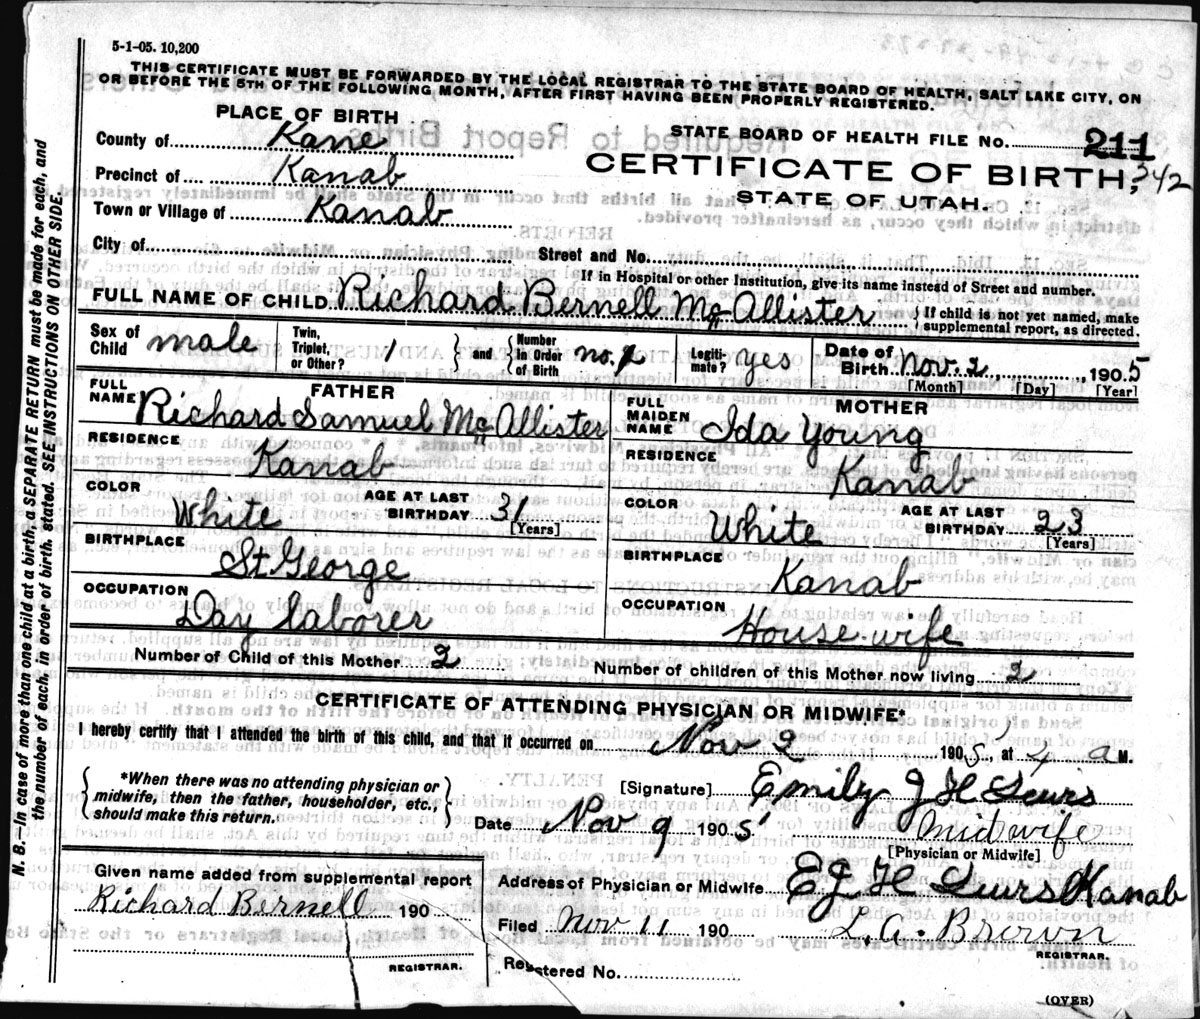 5-1-05. 10,200
THIS CERTIFICATE MUST BE FORWARDED BY THE LOCAL REGISTRAR TO THE STATE BOARD OF HEALTH, SALT LAKE CITY, ON
OR BEFORE THE 5TH OF THE FOLLOWING MONTH, AFTER FIRST HAVING BEEN PROPERLY REGISTERED.
PLACE OF BIRTH
County of Kane
STATE BOARD OF HEALTH FILE No. 211
Precinct of Kanab
CERTIFICATE OF BIRTH, 342
STATE OF UTAH.
Town or Village of Kanab
City of
Street and No.
If in Hospital or other Institution, give its name instead of Street and number.
FULL NAME OF CHILD Richard Bernell McAllister { If child is not yet named, make
supplemental report, as directed.
Sex of
Child male
Twin,
Triplet,
or Other? 1 } and { Number
in Order
of Birth no. 1
Legiti-
mate? yes
Date of
Birth Nov. 2, 1905
[Month] [Day] [Year]
FATHER
FULL
NAME Richard Samuel McAllister
RESIDENCE
Kanab
COLOR
White
AGE AT LAST
BIRTHDAY 31
[Years]
BIRTHPLACE
St George
OCCUPATION
Day laborer
MOTHER
FULL
MAIDEN
NAME Ida Young
RESIDENCE
Kanab
COLOR
White
AGE AT LAST
BIRTHDAY 23
[Years]
BIRTHPLACE
Kanab
OCCUPATION
House wife
Number of Child of this Mother 2
Number of children of this Mother now living 2
CERTIFICATE OF ATTENDING PHYSICIAN OR MIDWIFE*
I hereby certify that I attended the birth of this child, and that it occurred on Nov 2 1905, at 4 a M.
{ *When there was no attending physician or
midwife, then the father, householder, etc.,
should make this return. }
[Signature] Emily J H
Date Nov 9 1905
Midwife
[Physician or Midwife]
Given name added from supplemental report
Richard Bernell 190
REGISTRAR.
Address of Physician or Midwife E J H Kanab
Filed Nov 11 190
L. A. Brown
REGISTRAR.
Registered No.
(OVER)
N. B.—In case of more than one child at a birth, a SEPARATE RETURN must be made for each, and
the number of each, in order of birth, stated. SEE INSTRUCTIONS ON OTHER SIDE.